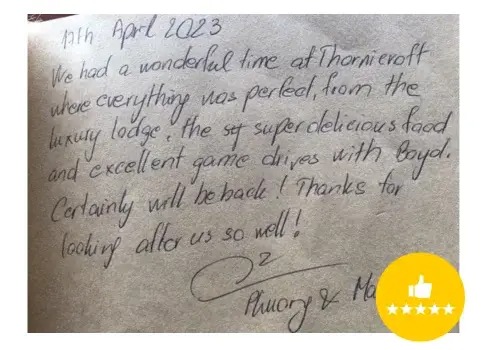 17th April 2023
We had a wonderful time at Thornicroft
where everything was perfect, from the
luxury lodge, the super delicious food
and excellent game drives with Boyd.
Certainly will be back! Thanks for
looking after us so well!
&